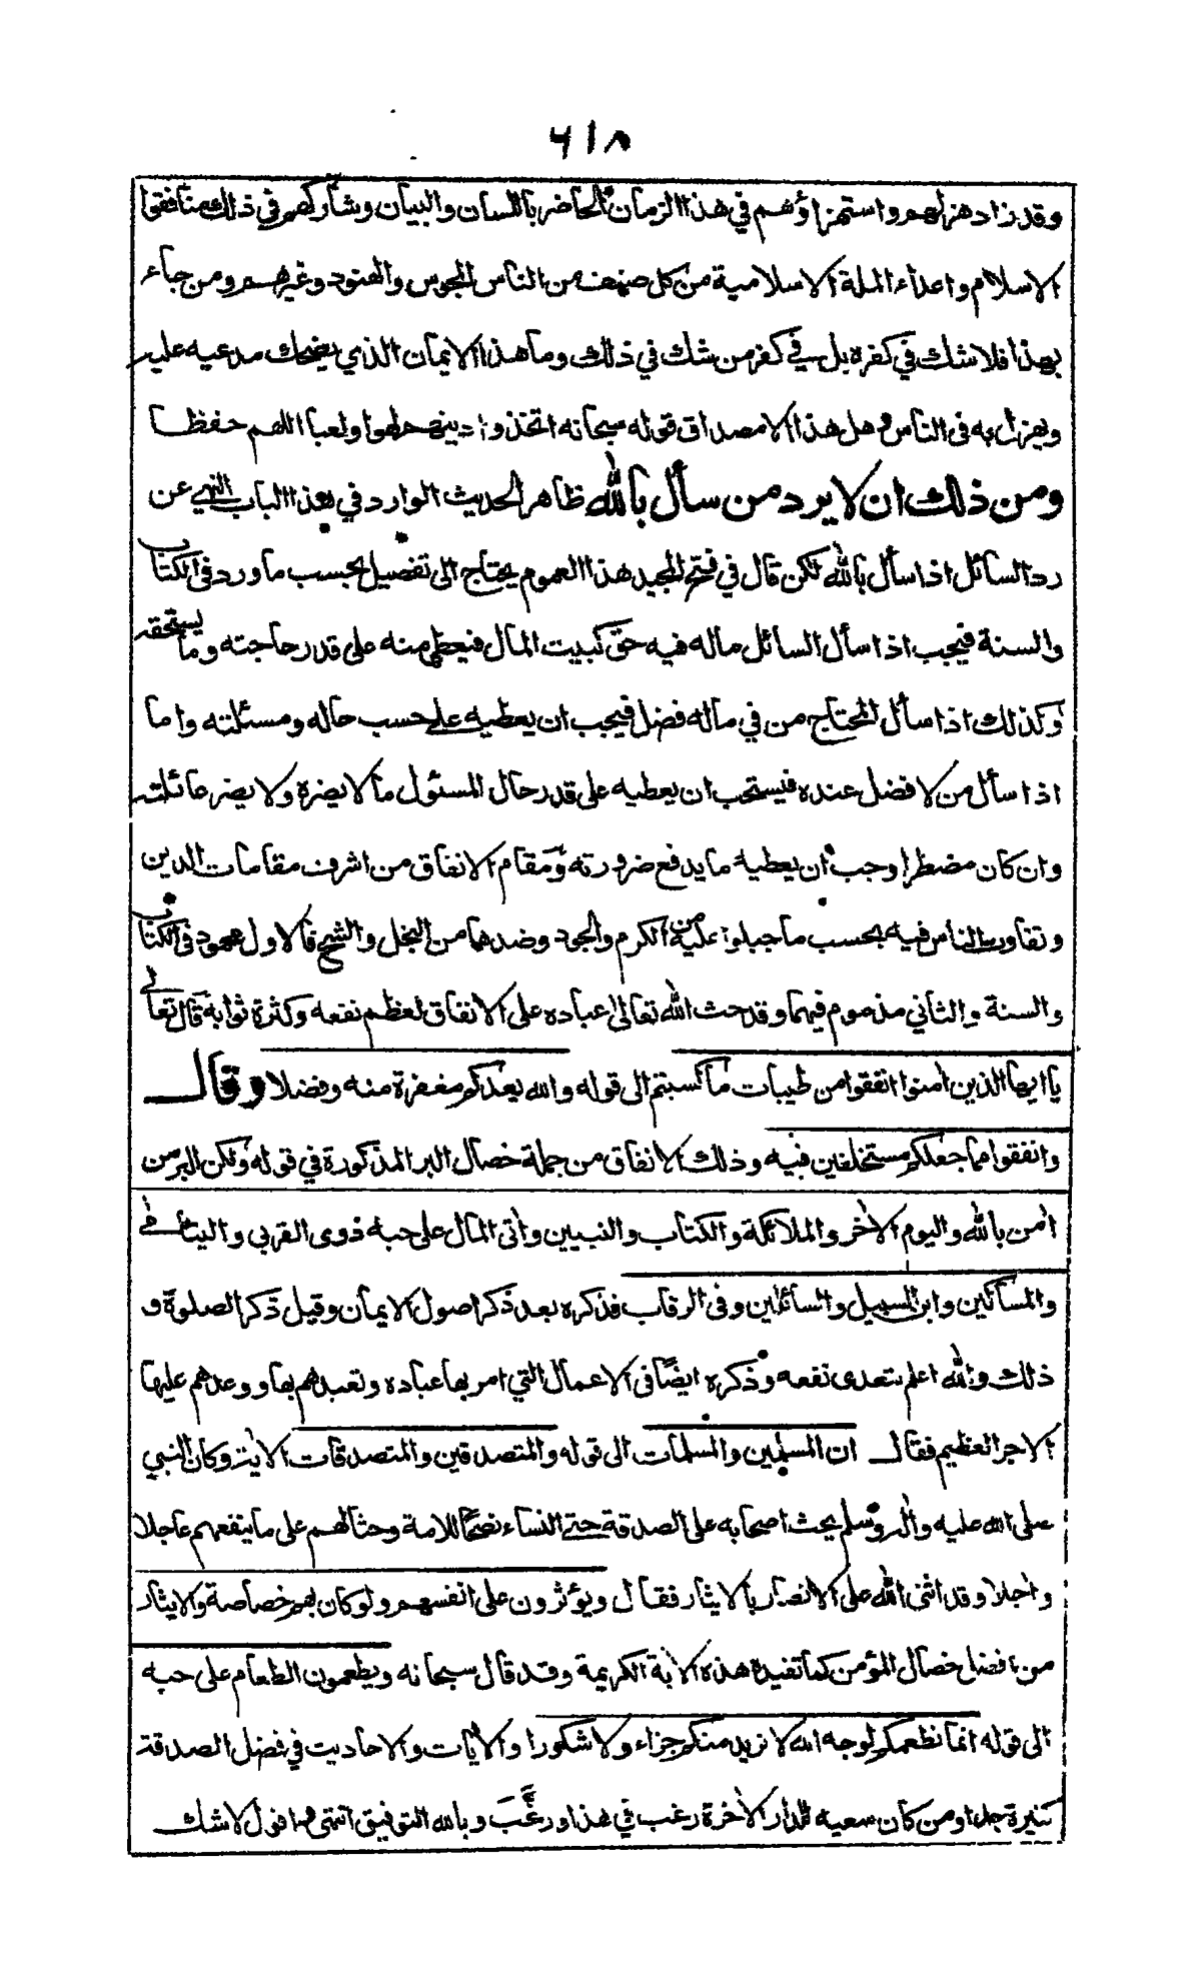 ٦١٨
وقد زاد هزلهم واستهزاؤهم في هذا الزمان الحاضر باللسان والبيان وشاركهم في ذلك منافقوا
الاسلام واعداء الملة الاسلامية من كل صنف من الناس المجوس والهنود وغيرهم ومن جاء
بهذا فلا شك في كفره بل في كفر من شك في ذلك وما هذا الايمان الذي يضحك مدعيه عليه
ويهزاء به فى الناس وهل هذا الا مصداق قوله سبحانه اتخذوا دينهم لهوا ولعبا اللهم حفظا
ومن ذلك ان لا يرد من سأل بالله ظاهر الحديث الوارد في هذا الباب النهي عن
رد السائل اذا سأل بالله لكن قال في فتح المجيد هذا العموم يحتاج الى تفصيل بحسب ما ورد فى الكتاب
والسنة فيجب اذا سأل السائل ماله فيه حق كبيت المال فيعطى منه على قدر حاجته وما يستحقه
وكذلك اذا سأل المحتاج من في ماله فضل فيجب ان يعطيه على حسب حاله ومسئلته واما
اذا سأل من لا فضل عنده فيستحب ان يعطيه على قدر حال المسئول ما لا يضره ولا يضر عائلته
وان كان مضطرا وجب ان يعطيه ما يدفع ضرورته ومقام الانفاق من اشرف مقامات الدين
وتفاوت الناس فيه بحسب ما جبلوا عليه من الكرم والجود وضدهما من البخل والشح فالاول محمود فى الكتاب
والسنة والثاني مذموم فيهما وقد حث الله تعالى عباده على الانفاق لعظم نفعه وكثرة ثوابه قال تعالى
يا ايها الذين امنوا انفقوا من طيبات ما كسبتم الى قوله والله يعدكم مغفرة منه وفضلا وقال
وانفقوا مما جعلكم مستخلفين فيه وذلك الانفاق من جملة خصال البر المذكورة في قوله ولكن البر من
امن بالله واليوم الاخر والملائكة والكتاب والنبيين واتى المال على حبه ذوى القربي واليتامى
والمساكين وابن السبيل والسائلين وفى الرقاب فذكره بعد ذكر اصول الايمان وقبل ذكر الصلوة و
ذلك والله اعلم لتعدى نفعه وذكره ايضا فى الاعمال التي امر بها عباده وتعبدهم بها ووعدهم عليها
الاجر العظيم فقال ان المسلمين والمسلمات الى قوله والمتصدقين والمتصدقات الاية وكان النبي
صلى الله عليه واله وسلم يحث اصحابه على الصدقة حتى النساء نصحا للامة وحثا لهم على ما ينفعهم عاجلا
واجلا وقد اثنى الله على الانصار بالايثار فقال ويؤثرون على انفسهم ولو كان بهم خصاصة والايثار
من افضل خصال المؤمن كما تفيده هذه الاية الكريمة وقد قال سبحانه ويطعمون الطعام على حبه
الى قوله انما نطعمكم لوجه الله لا نريد منكم جزاء ولا شكورا والايات والاحاديث في فضل الصدقة
كثيرة جدا ومن كان سعيه للدار الاخرة رغب في هذا ورغب وبالله التوفيق انتهى اقول لا شك